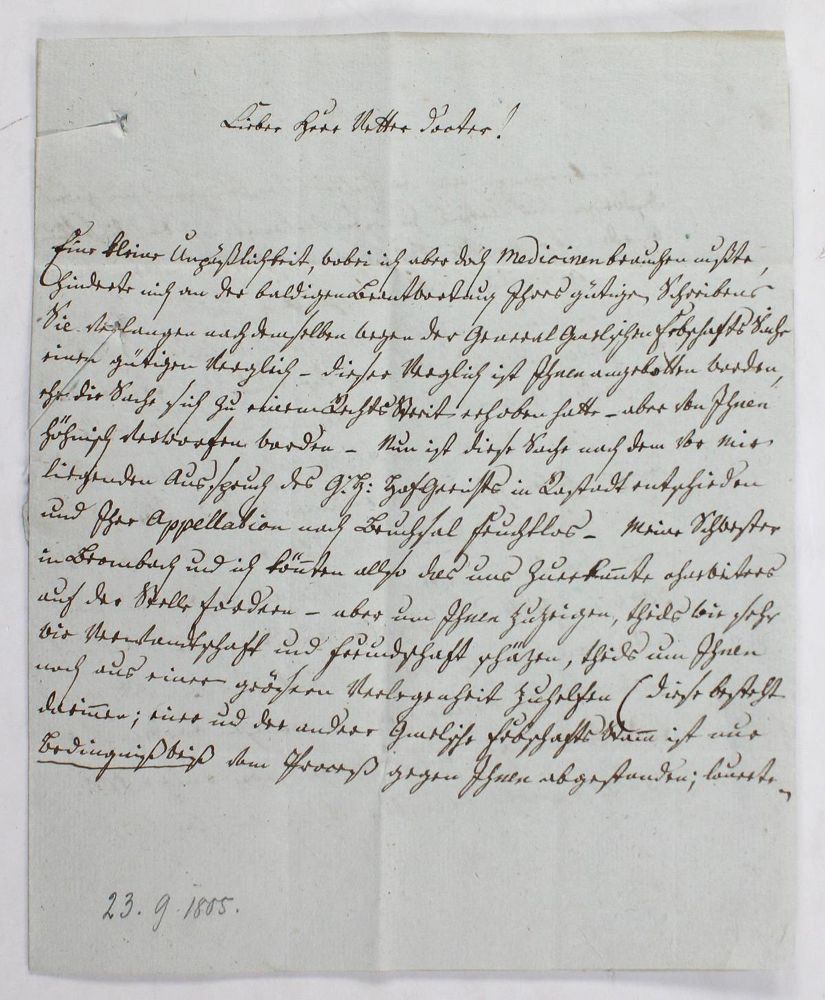 Lieber Herr Vetter Doctor!
Eine kleine Unpäßlichkeit, wobei ich aber doch Medicinen brauchen mußte,
hinderte mich an der baldigen Beantwortung Ihres gütigen Schreibens
Sie verlangen nach demselben wegen der General Gmelischen Erbschafts Sache
einen gütigen Verglich – dieser Verglich ist Ihnen angebotten worden,
ehe die Sache sich zu einem Rechts Streit erhoben hatte – aber von Ihnen
höhnisch verworfen worden – Nun ist diese Sache nach dem vor mir
liegenden Ausspruch des G: H: HofGerichts in Rastadt entschieden
und Ihre Appellation nach Bruchsal fruchtlos – Meine Schwester
in Brombach und ich könnten also das uns Zuerkannte ohnweiters
auf der Stelle fordern – aber um Ihnen zuzeigen, theils wie sehr
wir Verwandtschaft und Freundschaft schäzen, theils um Ihnen
noch aus einer grösern Verlegenheit zuhelfen (diese besteht
darinnen; einer und der andere Gmelische Erbschafts Stamm ist nur
Bedingnißweiß vom Proceß gegen Ihnen abgestanden; lauerte
23. 9. 1805.